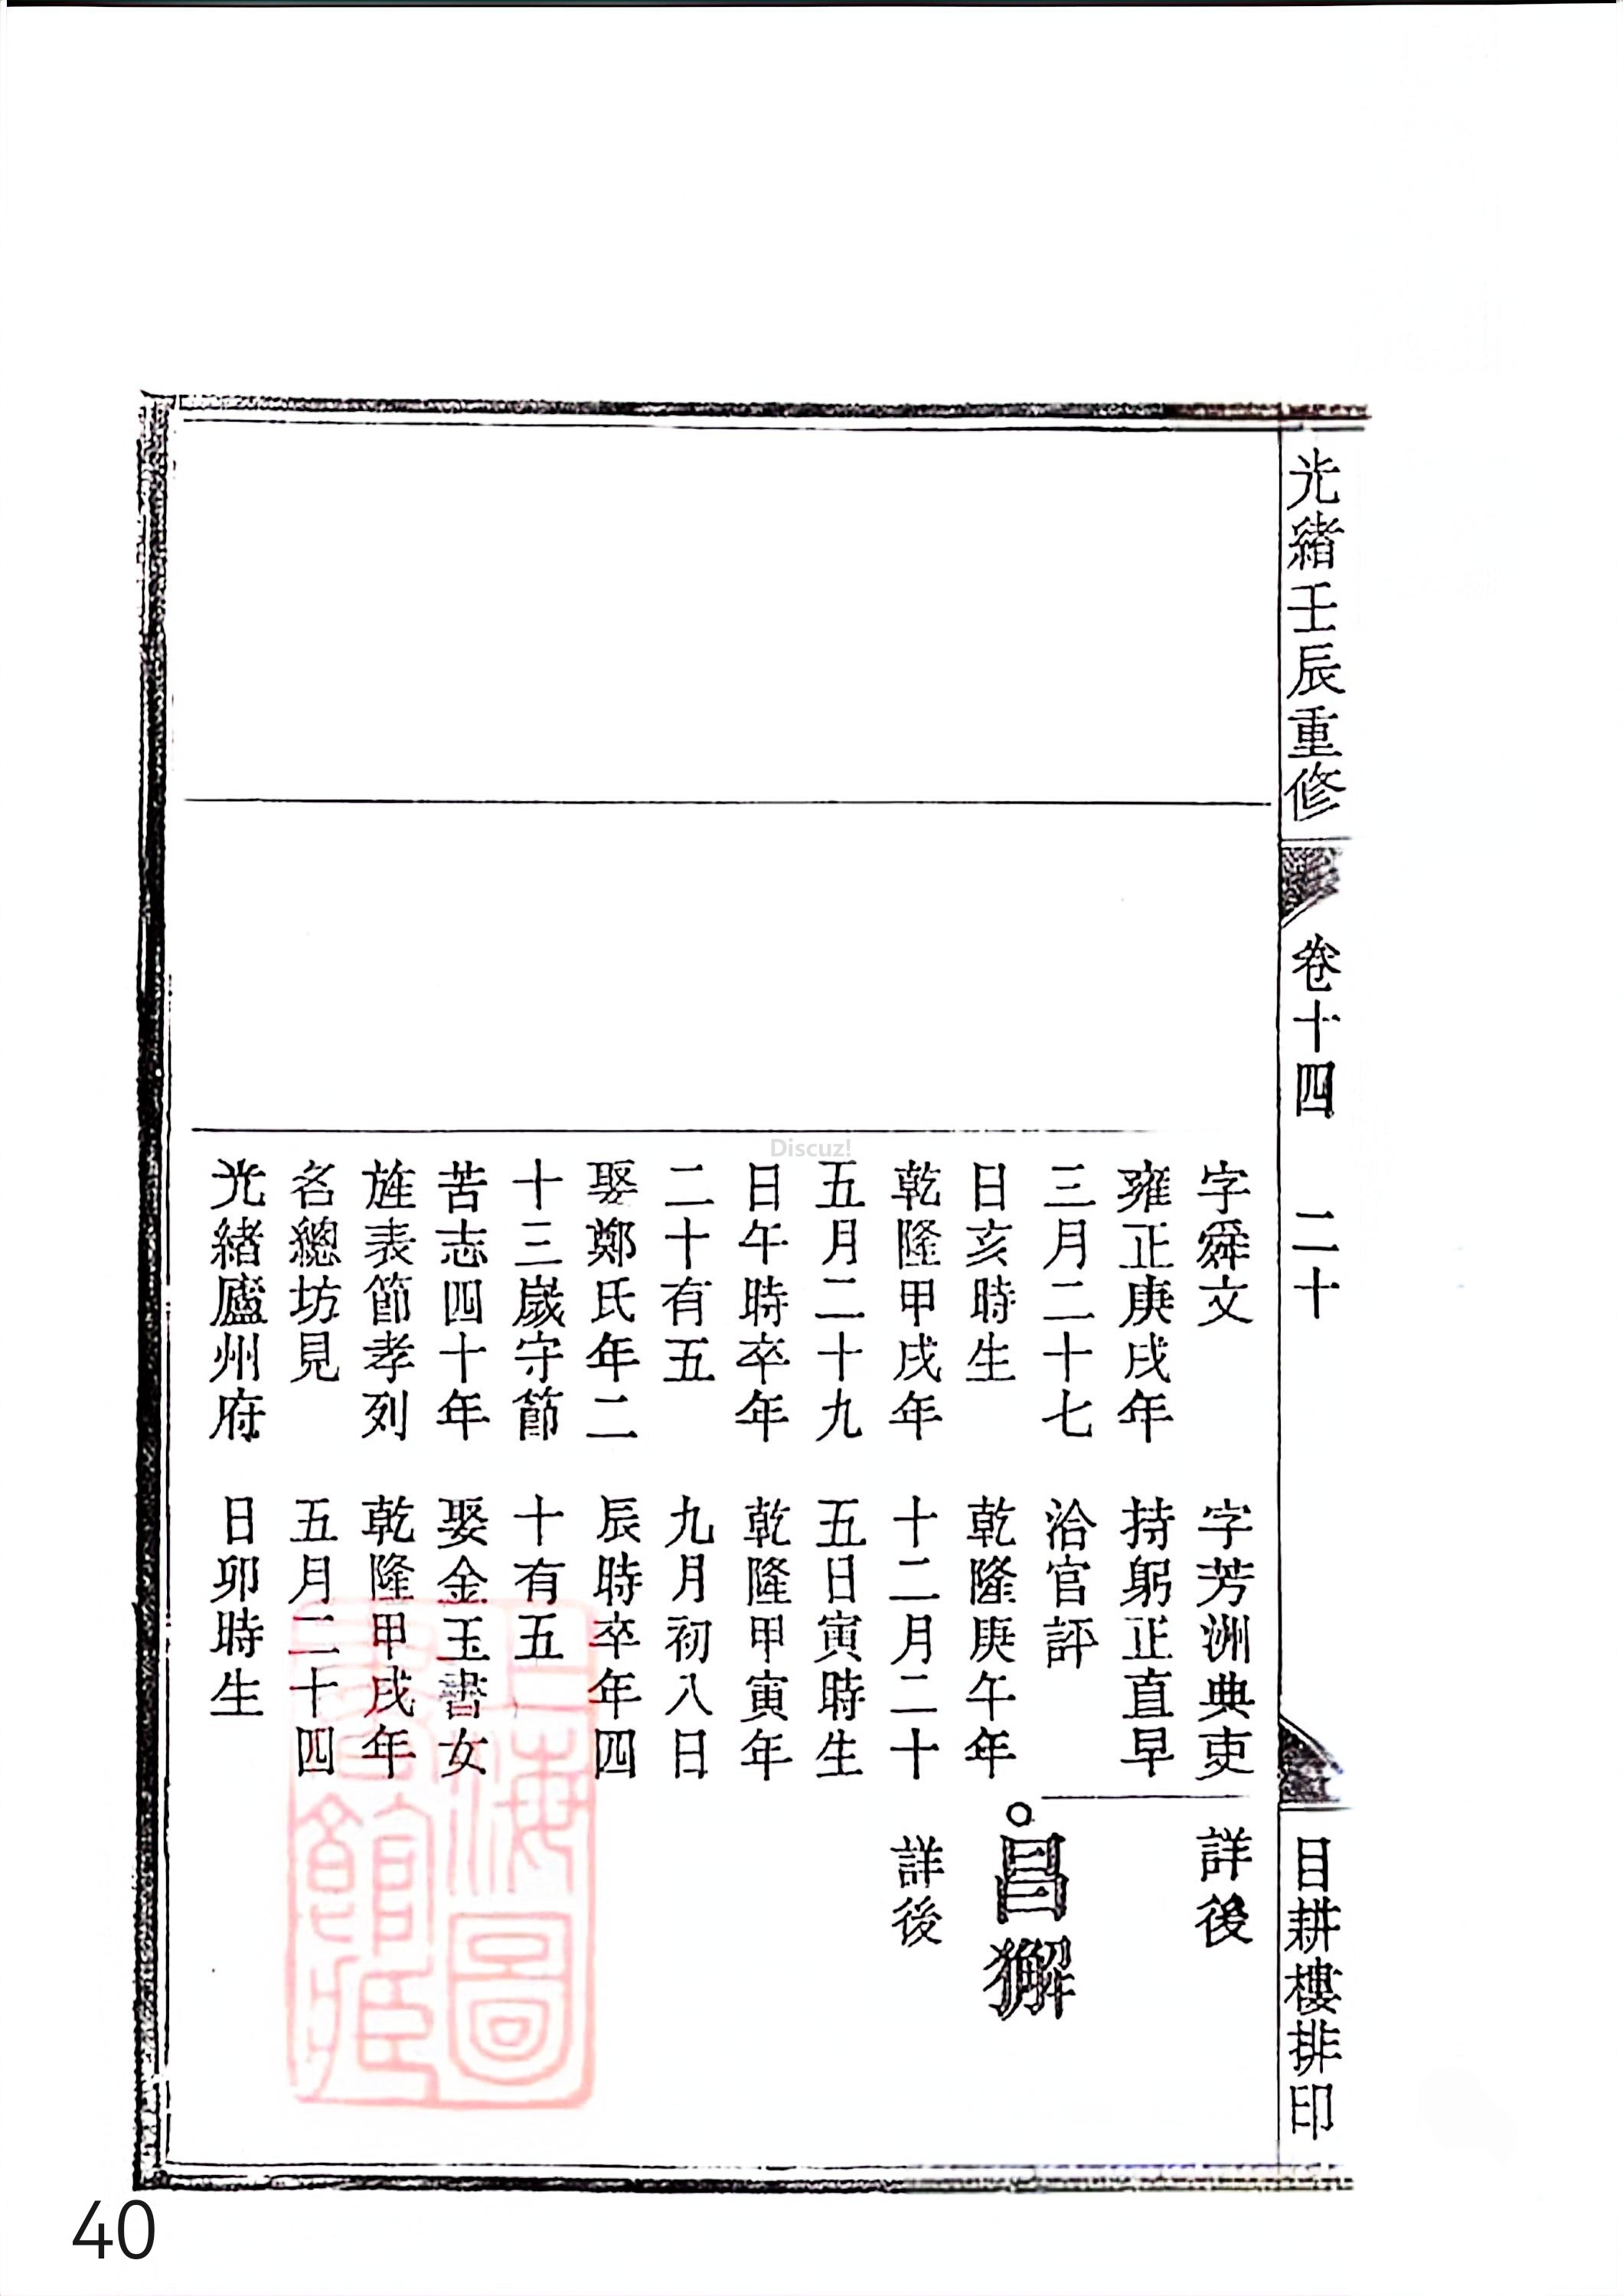 光緒壬辰重修
卷十四
二十
目耕樓排印
字舜文
雍正庚戌年
三月二十七
日亥時生
乾隆甲戌年
五月二十九
日午時卒年
二十有五
娶鄭氏年二
十三嵗守節
苦志四十年
旌表節孝列
名總坊見
光緒廬州府
字芳洲典吏
持躬正直早
洽官評
乾隆庚午年
十二月二十
五日寅時生
乾隆甲寅年
九月初八日
辰時卒年四
十有五
娶金玉書女
乾隆甲戌年
五月二十四
日卯時生
詳後
昌獬
詳後
上海圖
書館藏
Discuz!
40